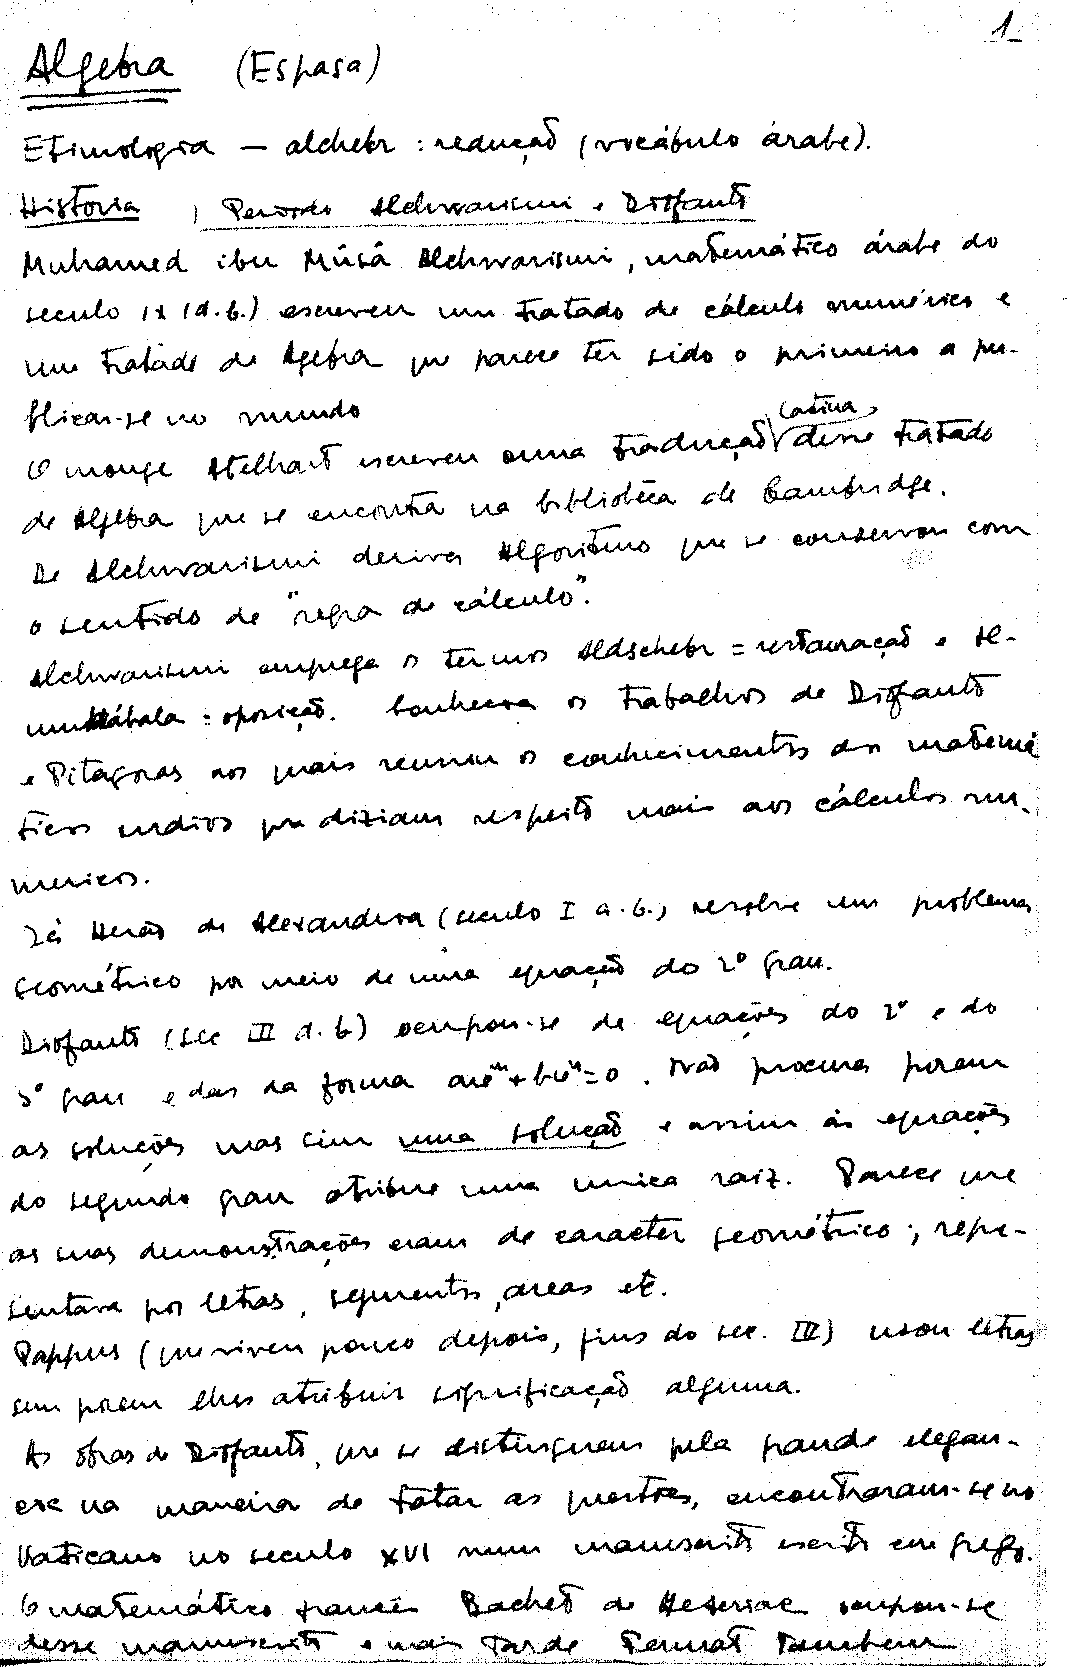 1
Algebra (Espasa)
Etimologia — alchebr : redução (vocábulo árabe).
Historia , Periodo Alchwarismi e Diofanto
Muhamed ibu Mûsâ Alchwarismi, matemático árabe do
seculo IX (d.C.) escreveu um tratado de cálculo numérico e
um tratado de Algebra que parece ter sido o primeiro a pu-
blicar-se no mundo
latina
O monge Atelhart escreveu uma tradução desse tratado
de Algebra que se encontra na biblioteca de Cambridge.
De Alchwarismi deriva Algoritmo que se conservou com
o sentido de "regra de cálculo".
Alchwarismi emprega os termos Aldschebr = restauração e Al-
mukábala = oposição. Conhecia os trabalhos de Diofanto
e Pitagoras aos quais reuniu os conhecimentos dos matemá
ticos indios que diziam respeito mais aos cálculos nu-
mericos.
Já Herão de Alexandria (seculo I a.C.) resolve um problema
geométrico por meio de uma equação do 2º grau.
Diofanto (sec III d.C) ocupou-se de equações do 2º e do
3º grau e das da forma ax^m+bx^n=0. Não procura porem
as soluções mas sim uma solução e assim às equações
do segundo grau atribue uma unica raiz. Parece que
as suas demonstrações eram de caracter geométrico; repre-
sentava por letras, segmentos, areas etc.
Pappus (que viveu pouco depois, fins do sec. III) usou letras
sem porem lhes atribuir significação alguma.
As obras de Diofanto, que se distinguem pela grande elegan-
cia na maneira de tratar as questões, encontraram-se no
Vaticano no seculo XVI num manuscrito escrito em grego.
O matemático francês Bachet de Meseriac ocupou-se
desse manuscrito e mais tarde Fermat tambem